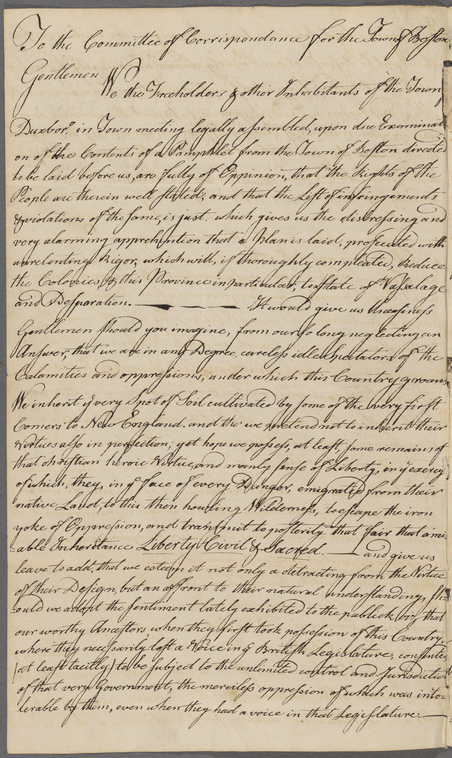 To the Committee of Correspondance for the Town of Boston.
Gentlemen
We the Freeholders & other Inhabitants of the Town
Duxboro, in Town meeting legally assembled, upon due Examinati
on of the Contents of a Pamphlet from the Town of Boston directed
to be laid before us, are fully of Oppinion, that the Rights of the
People are therein well stated; and that the List of infringements
& violations of the same, is just. which gives us the distressing and
very alarming apprehention that a plan is laid, prosecuted with
unrelenting Rigor, which will, if thoroughly compleated, Reduce
the Colonies, & this Province in particular, to state of Vassalage
and Desparation. It would give us Uneasiness
Gentlemen should you imagine, from our so long neglecting an
Answer, that we are in any Degree, careless idle Spectators of the
Calamities and oppressions, under which this Country groans
We inherit ye very Spot of Soil cultivated by some of the very first
Comers to New England, and tho' we pretend not to inherit their
Virtues also in perfection; yet hope we possess, at least, some remains of
that christian heroic Virtue, and manly sense of Liberty, in ye exercise
of which, they, in ye face of every Danger, emigrated from their
native Land, to this then howling Wilderness, to escape the iron
yoke of Oppression, and transmit to posterity that fair that ami-
-able Inheritance Liberty Civil & Sacred. and give us
leave to add, that we esteem it not only a detracting from the Virtue
of their Design, but an affront to their natural understanding, sh
ould we adopt the sentiment lately exhibited to the publick, viz, that
our worthy Ancestors when they first took possession of this Country
where they necessarily lost a Voice in ye British Legislature, consented
(at least tacitly) to be subject to the unlimited control and Jurisdiction
of that very Government, the merciless oppression of which was into-
-lerable by them, even when they had a voice in that Legislature.